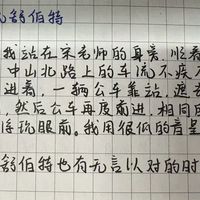 舒伯特
我站在宋老师的身旁，顺着
中山北路上的车流不疾不
进着，一辆公车靠站，遮去
，然后公车再度前进，相同的
浮现眼前。我用很低的音量
舒伯特也有无言以对的时